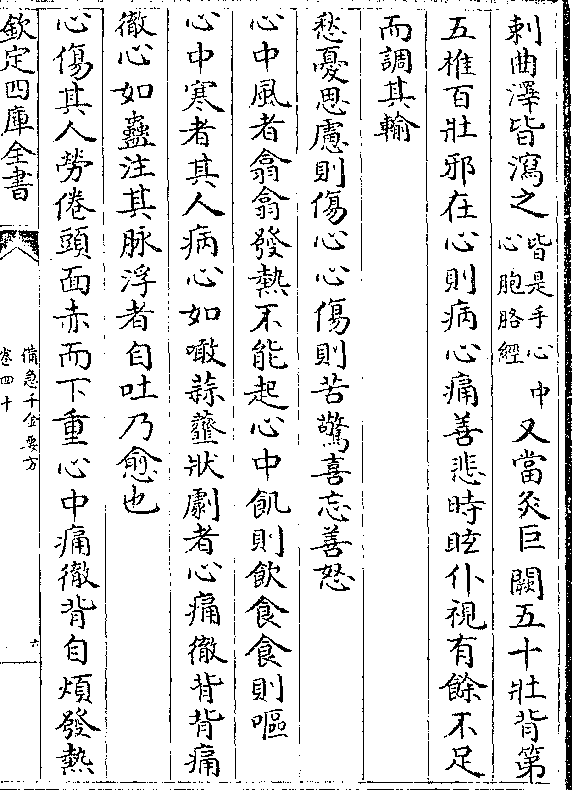 刺曲澤皆瀉之皆是手心心胞胳經中又當灸巨闕五十壯背第
五椎百壯邪在心則病心痛善悲時眩仆視有餘不足
而調其輸
愁憂思慮則傷心心傷則苦驚喜忘善怒
心中風者翕翕發熱不能起心中飢則飲食食則嘔
心中寒者其人病心如噉蒜虀狀劇者心痛徹背背痛
徹心如蠱注其脉浮者自吐乃愈也
心傷其人勞倦頭面赤而下重心中痛徹背自煩發熱
欽定四庫全書
備急千金要方
卷四十
六